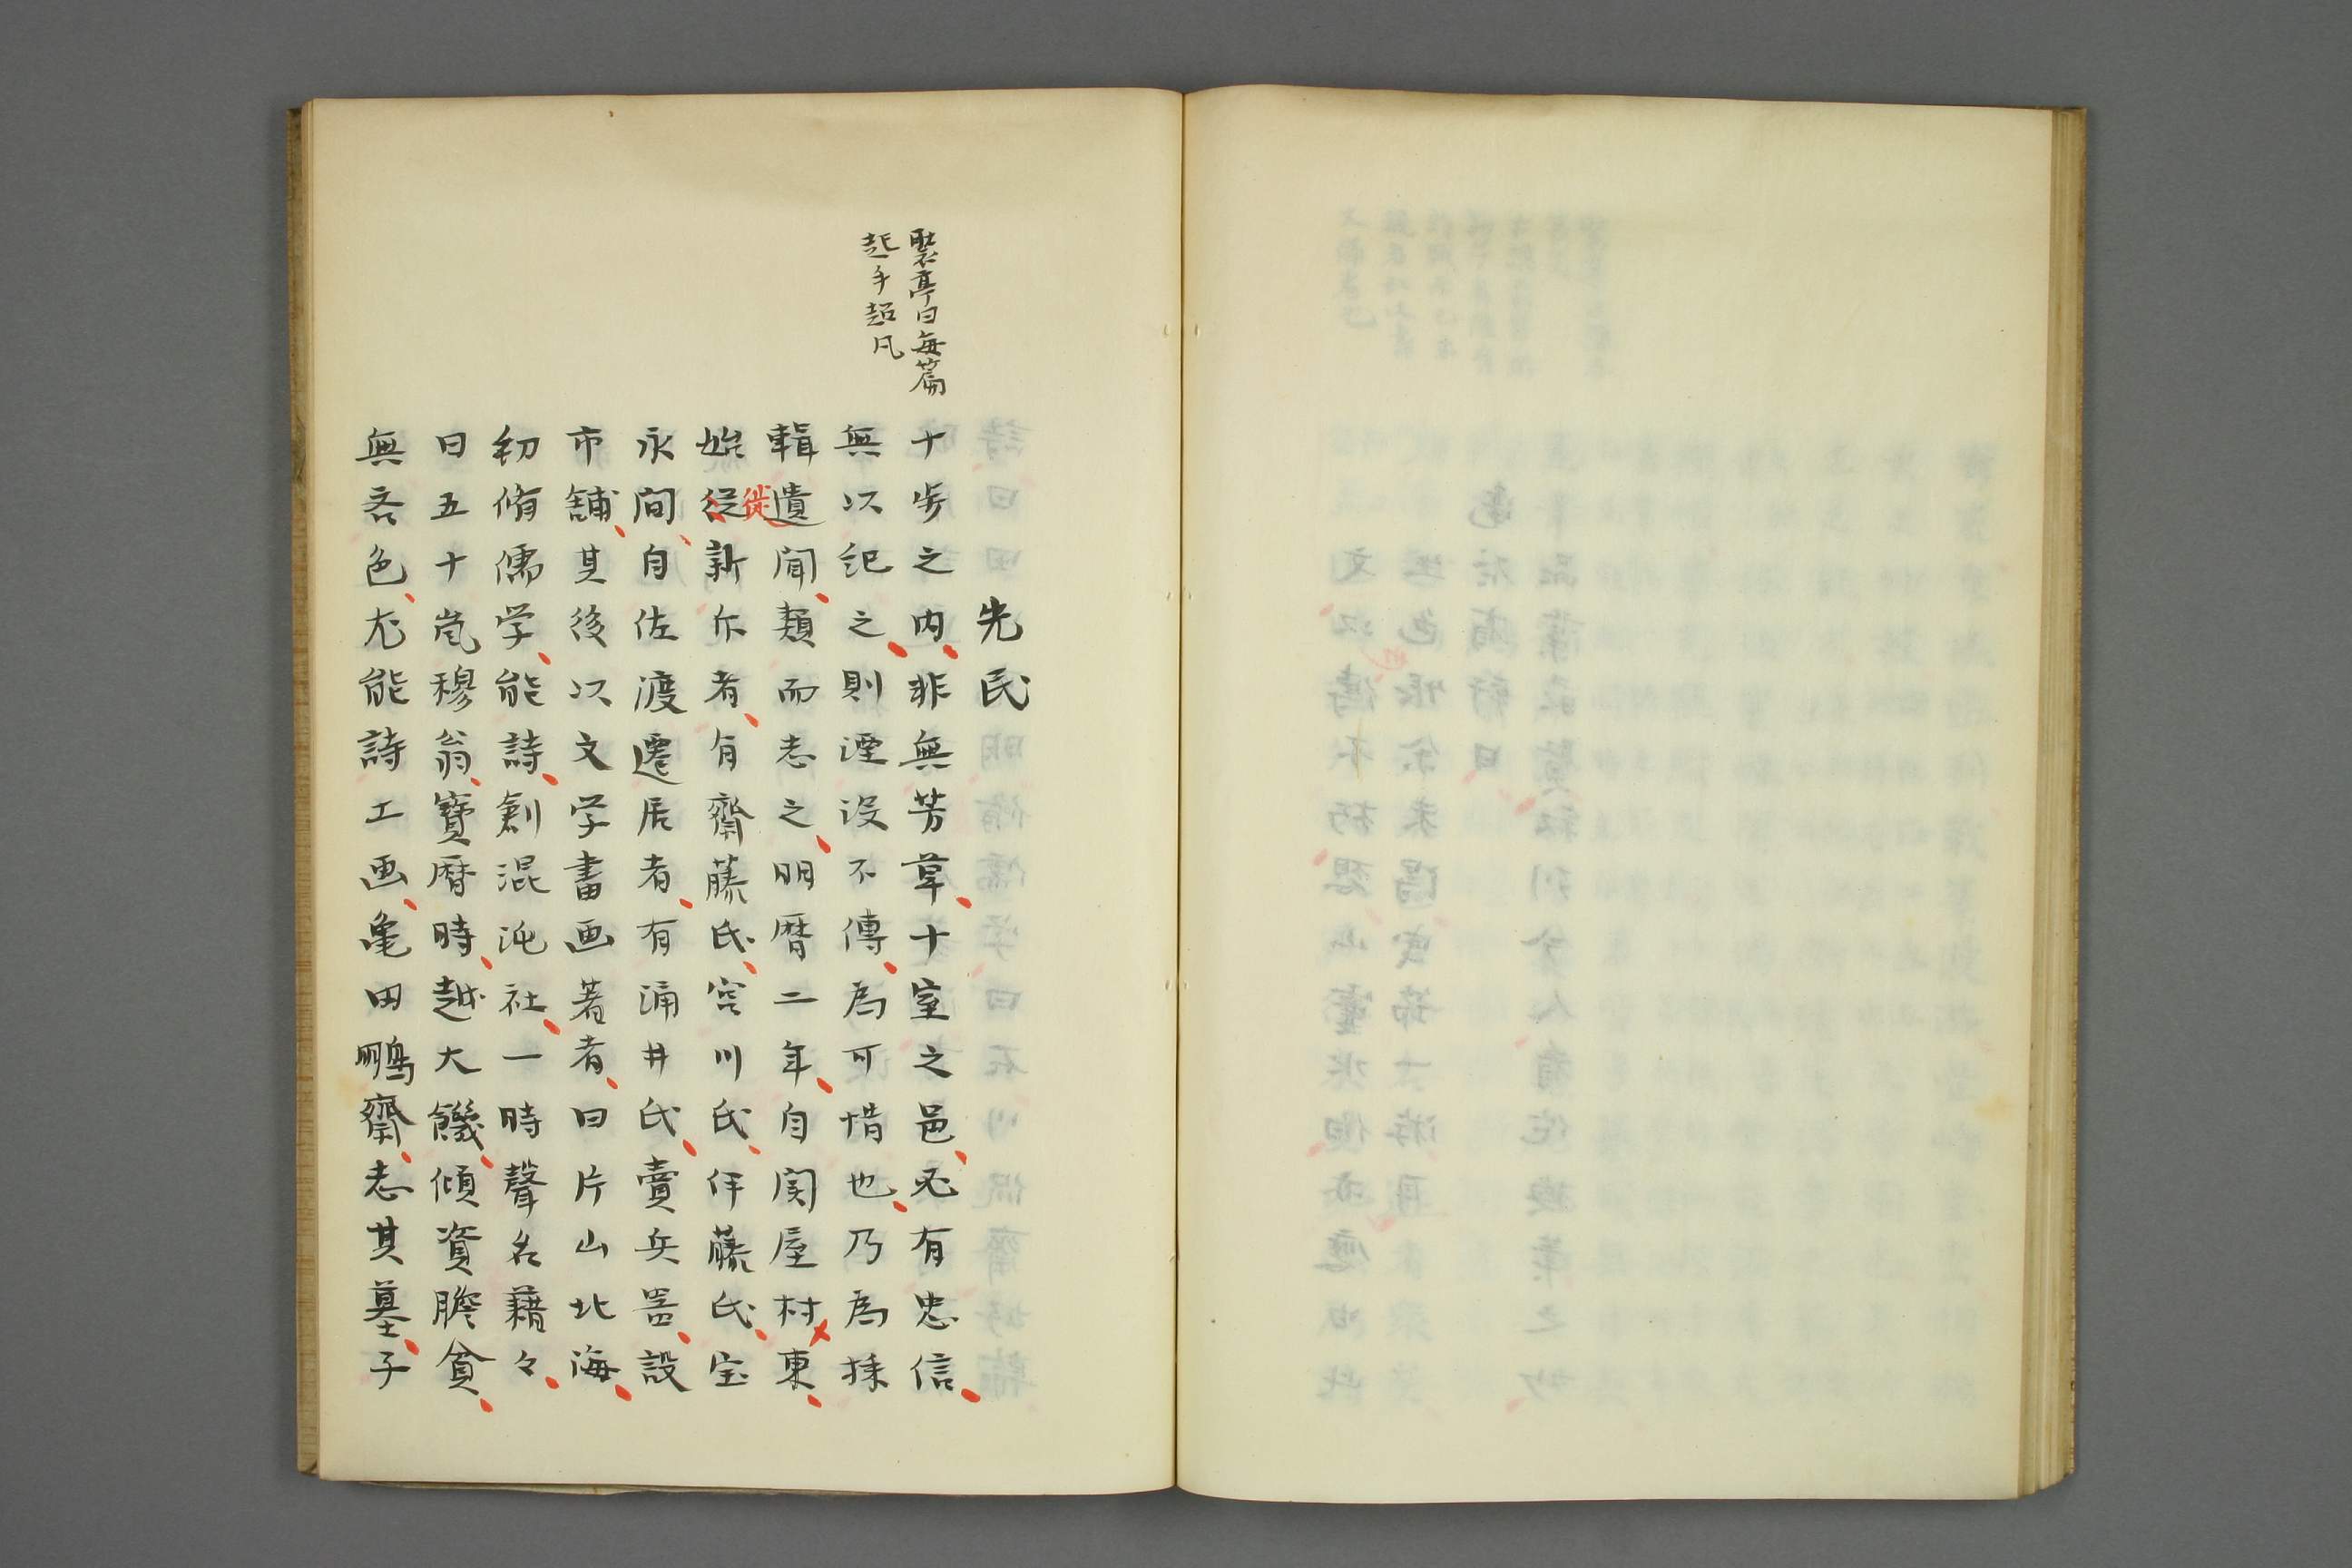 先民
十步之内非無芳草十室之邑必有忠信
無以紀之則湮没不傳為可惜也乃為採
輯遺聞類而志之明暦二年自関屋村東
始従新尓者有齋藤氏宮川氏伴藤氏宝
徙
永間自佐渡遷居者有涌井氏賣兵器設
市舗其後以文学書画著者曰片山北海
初脩儒学能詩創混沌社一時聲名藉々
曰五十嵐穆翁寶暦時越大饑傾資贍貧
無吝色尤能詩工画亀田鵬齋志其墓子
聚亭曰毎篇
起手超凡